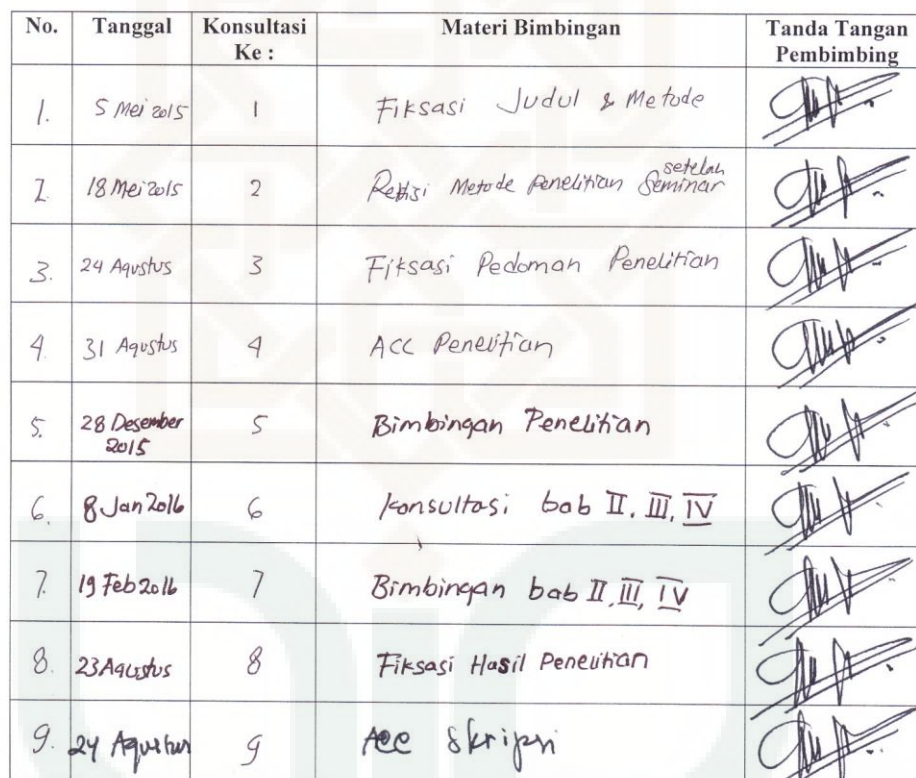 No. Tanggal Konsultasi Ke : Materi Bimbingan Tanda Tangan Pembimbing
1. 5 Mei 2015 1 Fiksasi Judul & Metode
2. 18 Mei 2015 2 Revisi Metode Penelitian setelah Seminar
3. 24 Agustus 3 Fiksasi Pedoman Penelitian
4. 31 Agustus 4 ACC Penelitian
5. 28 Desember 2015 5 Bimbingan Penelitian
6. 8 Jan 2016 6 Konsultasi bab II, III, IV
7. 19 Feb 2016 7 Bimbingan bab II, III, IV
8. 23 Agustus 8 Fiksasi Hasil Penelitian
9. 24 Agustus 9 ACC Skripsi